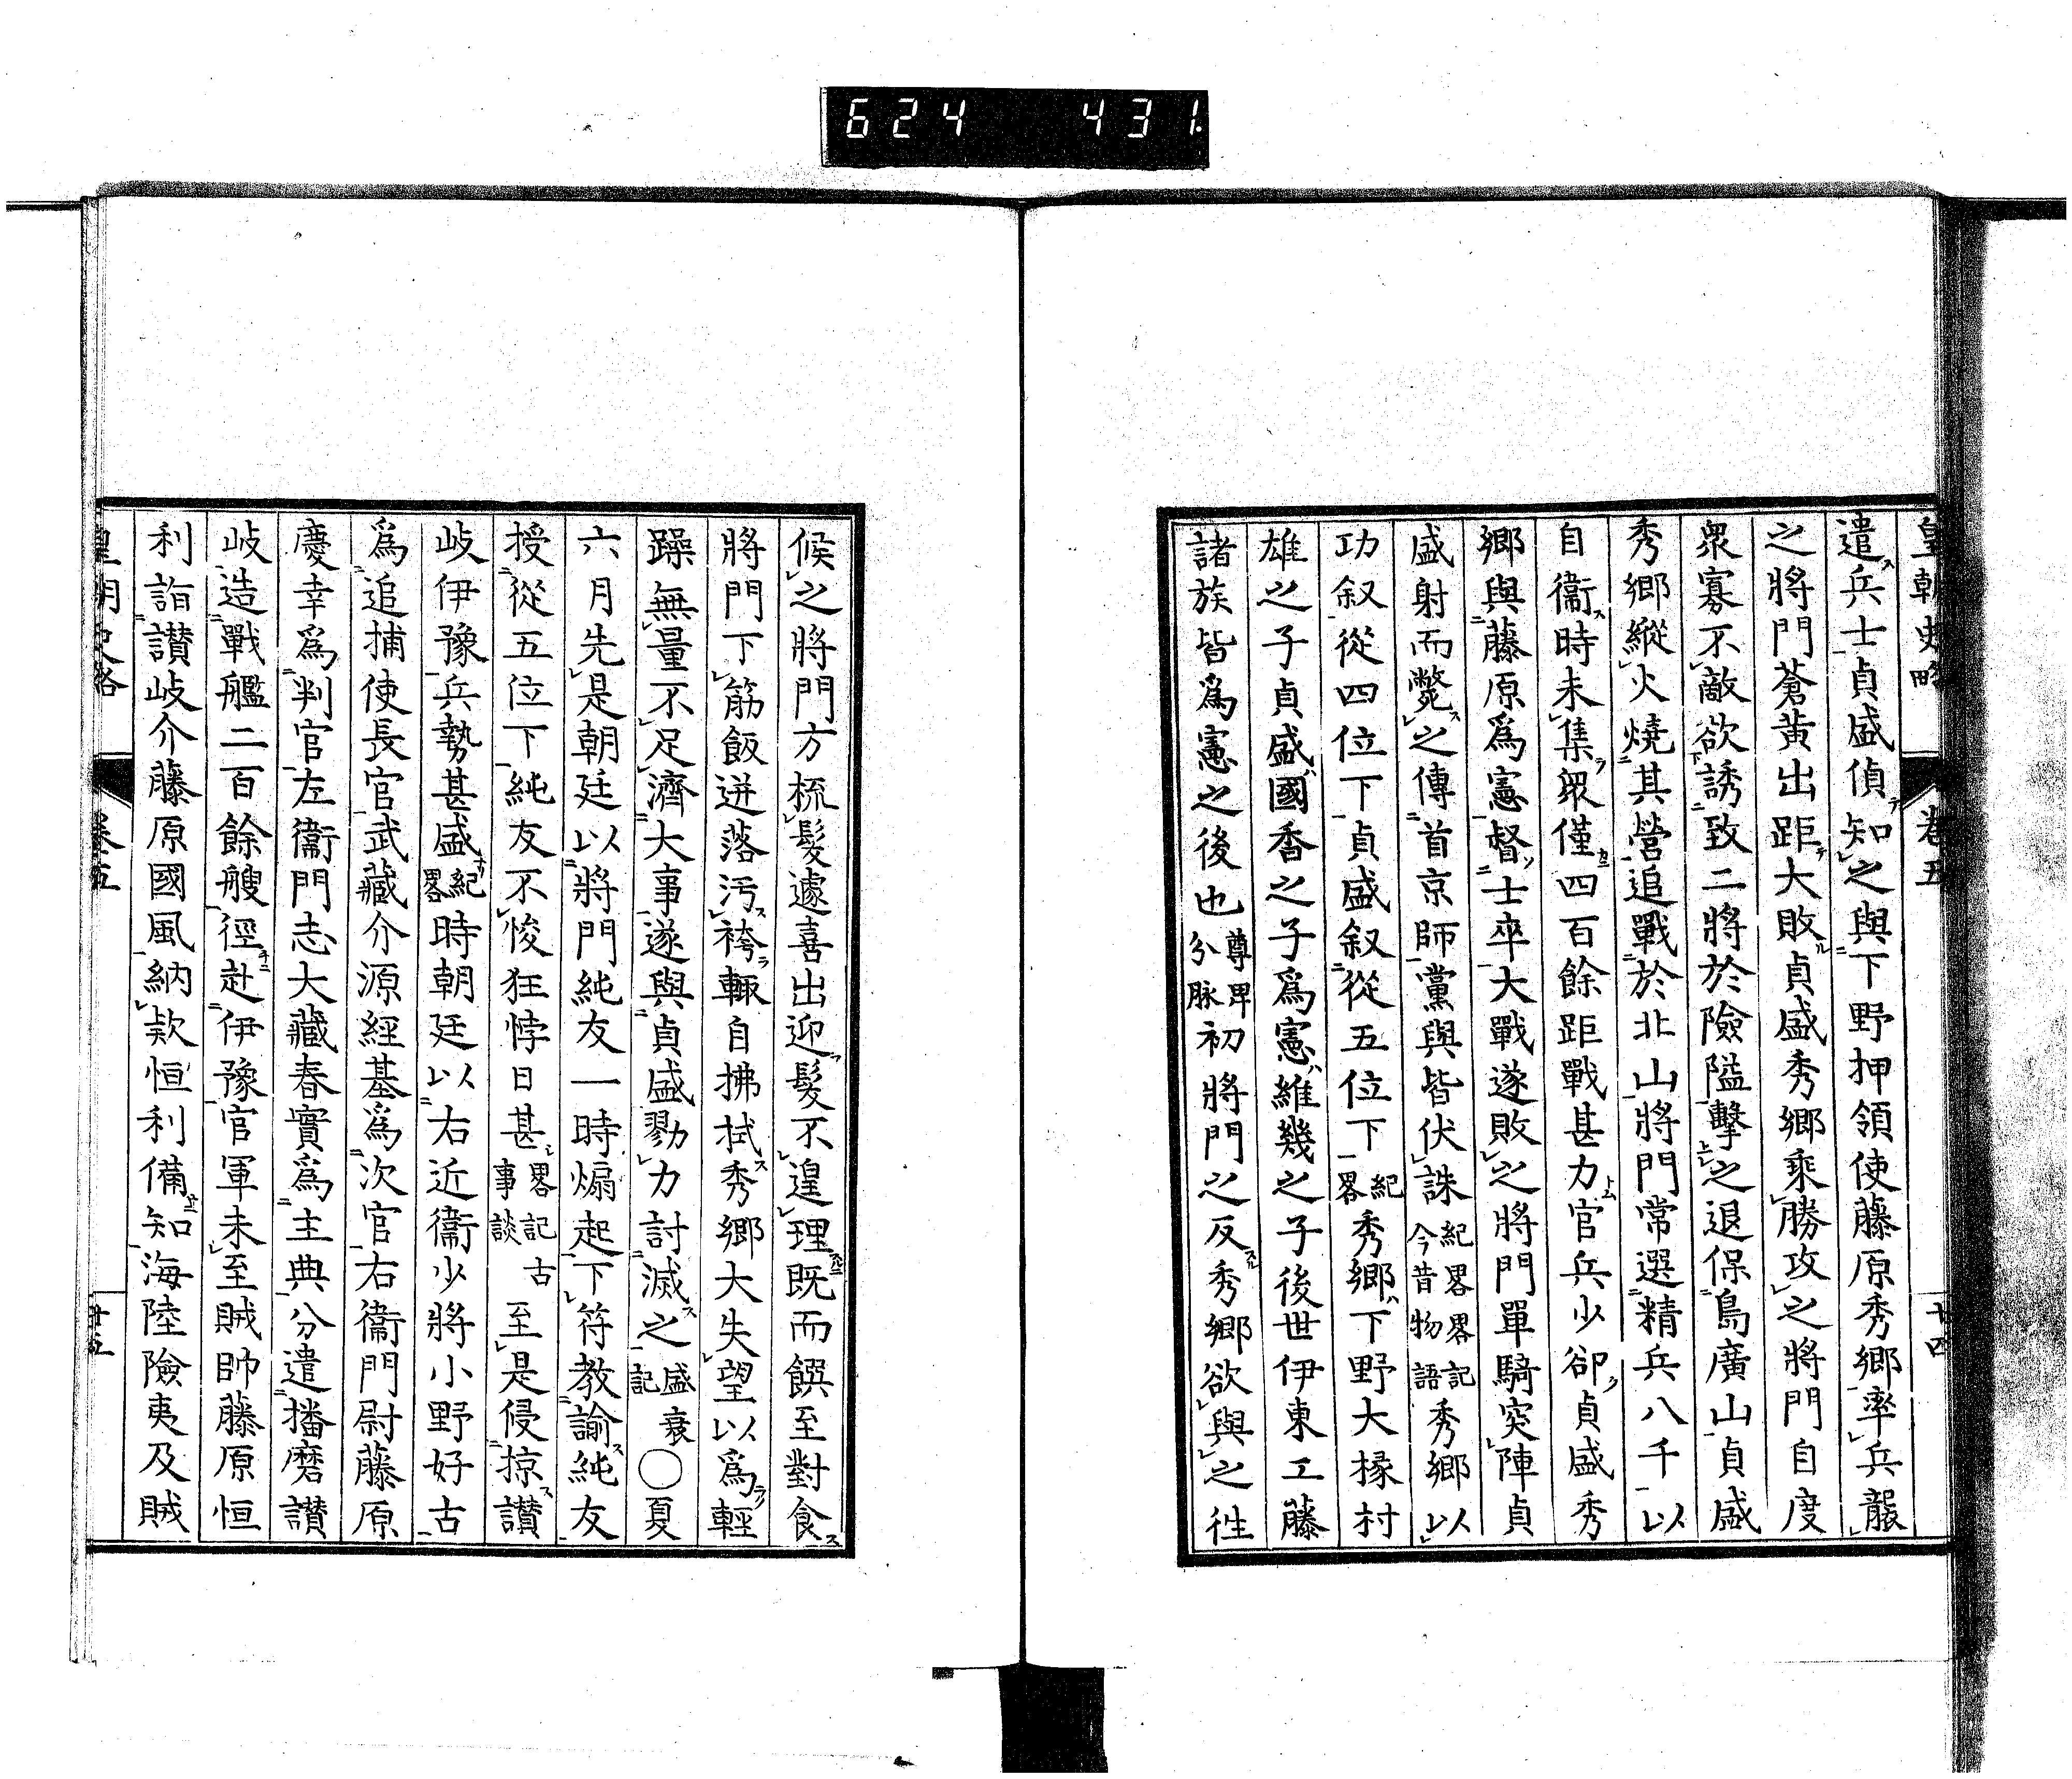 624 431
皇朝史略 卷五 十四
遣兵士貞盛偵知之與下野押領使藤原秀鄉率兵襲
之將門蒼黃出距大敗貞盛秀鄉乘勝攻之將門自度
衆寡不敵欲誘致二將於險隘擊之退保島廣山貞盛
秀鄉縱火燒其營追戰於北山將門常選精兵八千以
自衞時未集衆僅四百餘距戰甚力官兵少卻貞盛秀
鄉與藤原爲憲督士卒大戰遂敗之將門單騎突陣貞
盛射而斃之傳首京師黨與皆伏誅紀畧畧記今昔物語秀鄉以
功叙從四位下貞盛叙從五位下紀畧秀鄉下野大掾村
雄之子貞盛國香之子爲憲維幾之子後世伊東工藤
諸族皆爲憲之後也尊卑分脉初將門之反秀鄉欲與之徃
候之將門方梳髮遽喜出迎髮不遑理既而饌至對食
將門下筋飯迸落汚袴輙自拂拭秀鄉大失望以爲輕
躁無量不足濟大事遂與貞盛勠力討滅之盛衰記〇夏
六月先是朝廷以將門純友一時煽起下符教諭純友
授從五位下純友不悛狂悖日甚畧記古事談至是侵掠讃
岐伊豫兵勢甚盛紀畧時朝廷以右近衞少將小野好古
爲追捕使長官武藏介源經基爲次官右衞門尉藤原
慶幸爲判官左衞門志大藏春實爲主典分遣播磨讃
岐造戰艦二百餘艘徑赴伊豫官軍未至賊帥藤原恒
利詣讃岐介藤原國風納款恒利備知海陸險夷及賊
皇朝史略 卷五 十五